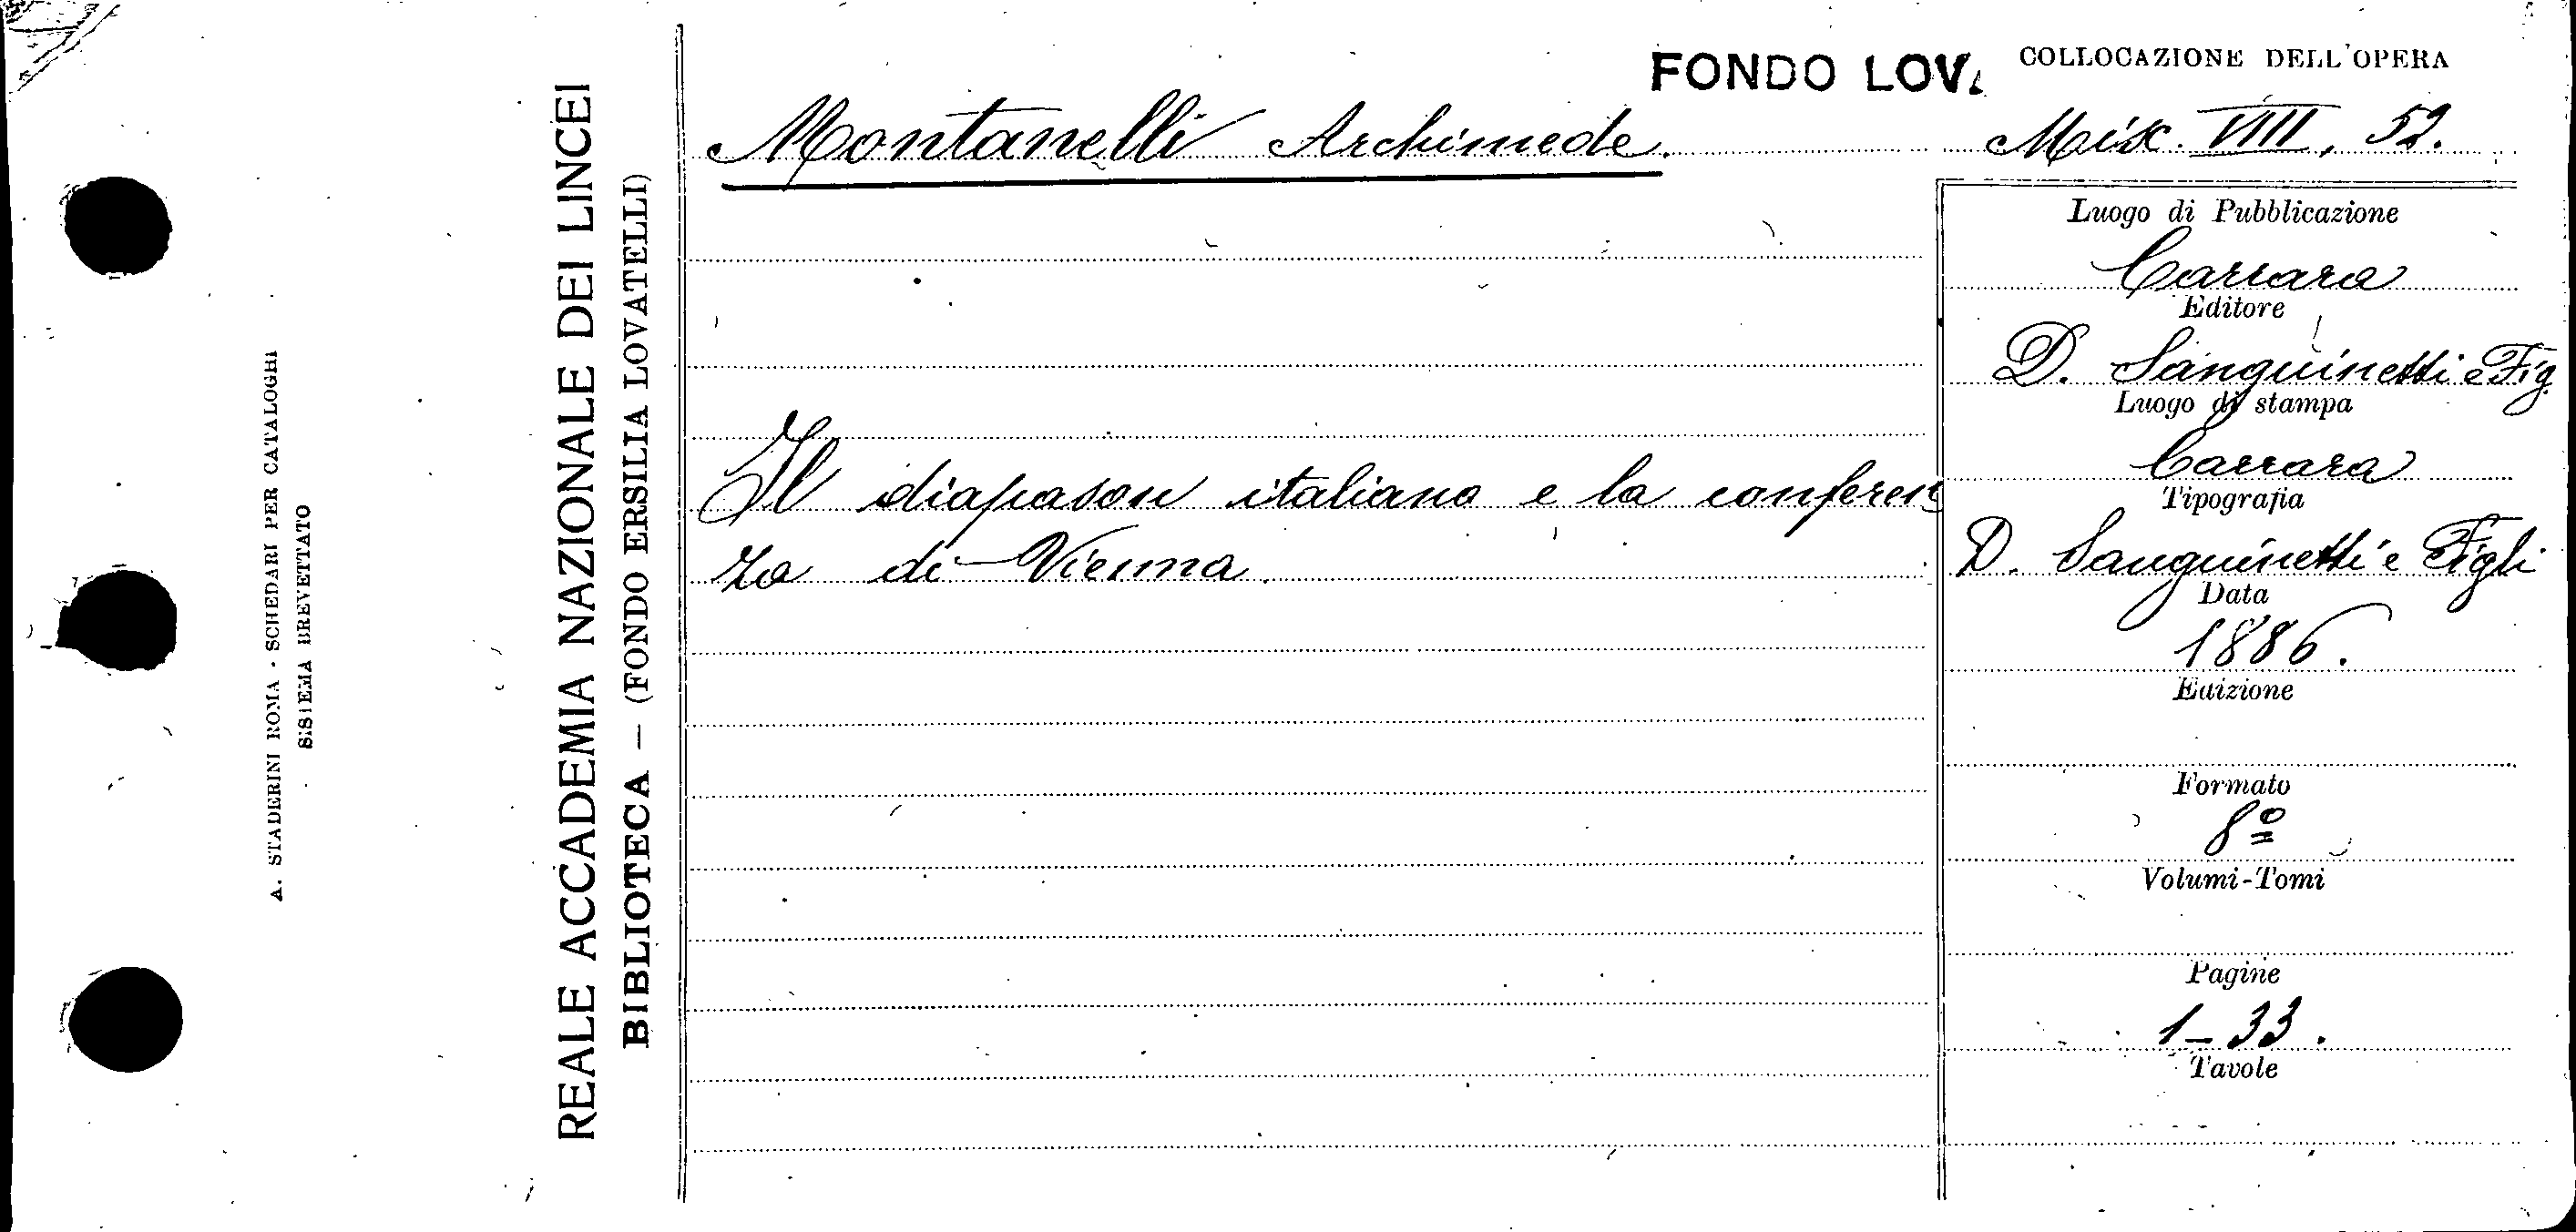 A. STADERINI ROMA - SCHEDARI PER CATALOGHI
SISTEMA BREVETTATO
REALE ACCADEMIA NAZIONALE DEI LINCEI
BIBLIOTECA — (FONDO ERSILIA LOVATELLI)
FONDO LOVA
COLLOCAZIONE DELL'OPERA
Montanelli Archimede.
Misc. VIII, 52.
Il diapason italiano e la conferen
za di Vienna.
Luogo di Pubblicazione
Carrara
Editore
D. Sanguinetti e Fig
Luogo di stampa
Carrara
Tipografia
D. Sanguinetti e Figli
Data
1886.
Edizione
Formato
8º
Volumi-Tomi
Pagine
1-33.
Tavole